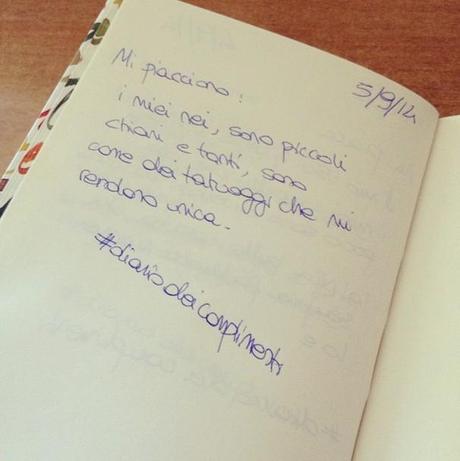 5/9/14
Mi piacciono:
i miei nei, sono piccoli
chiari e tanti, sono
come dei tatuaggi che mi
rendono unica.
#diariodeicomplimenti